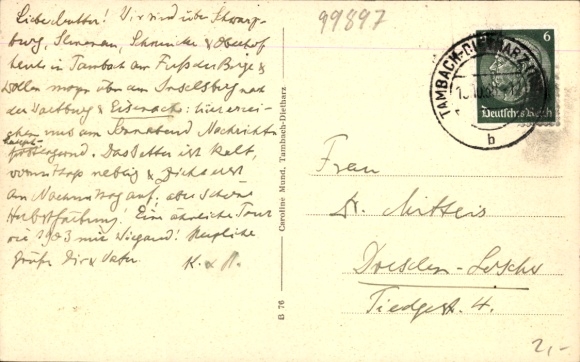 99897
Liebe Mutter! Wir sind über Schwarz-
burg, Ilmenau, Schmücke & Oberhof
heute in Tambach am Fuß der Berge &
wollen morgen über den Inselsberg nach
der Wartburg & Eisenach: hier errei-
chen uns am Sonnabend Nachrichten
hauptpostlagernd. Das Wetter ist kalt,
vormittags neblig & Dichte erst
am Nachmittag auf, aber schöne
Herbstfärbung! Eine ähnliche Tour
wie 1903 mit Wiegand! Herzliche
Grüße Dir & Vater.
K. & H.
Caroline Mund, Tambach-Dietharz
B 76
TAMBACH-DIETHARZ
b
6
Deutsches Reich
Frau
Dr. Mitteis
Dresden-Loschw
Tiedgest. 4.
2,-